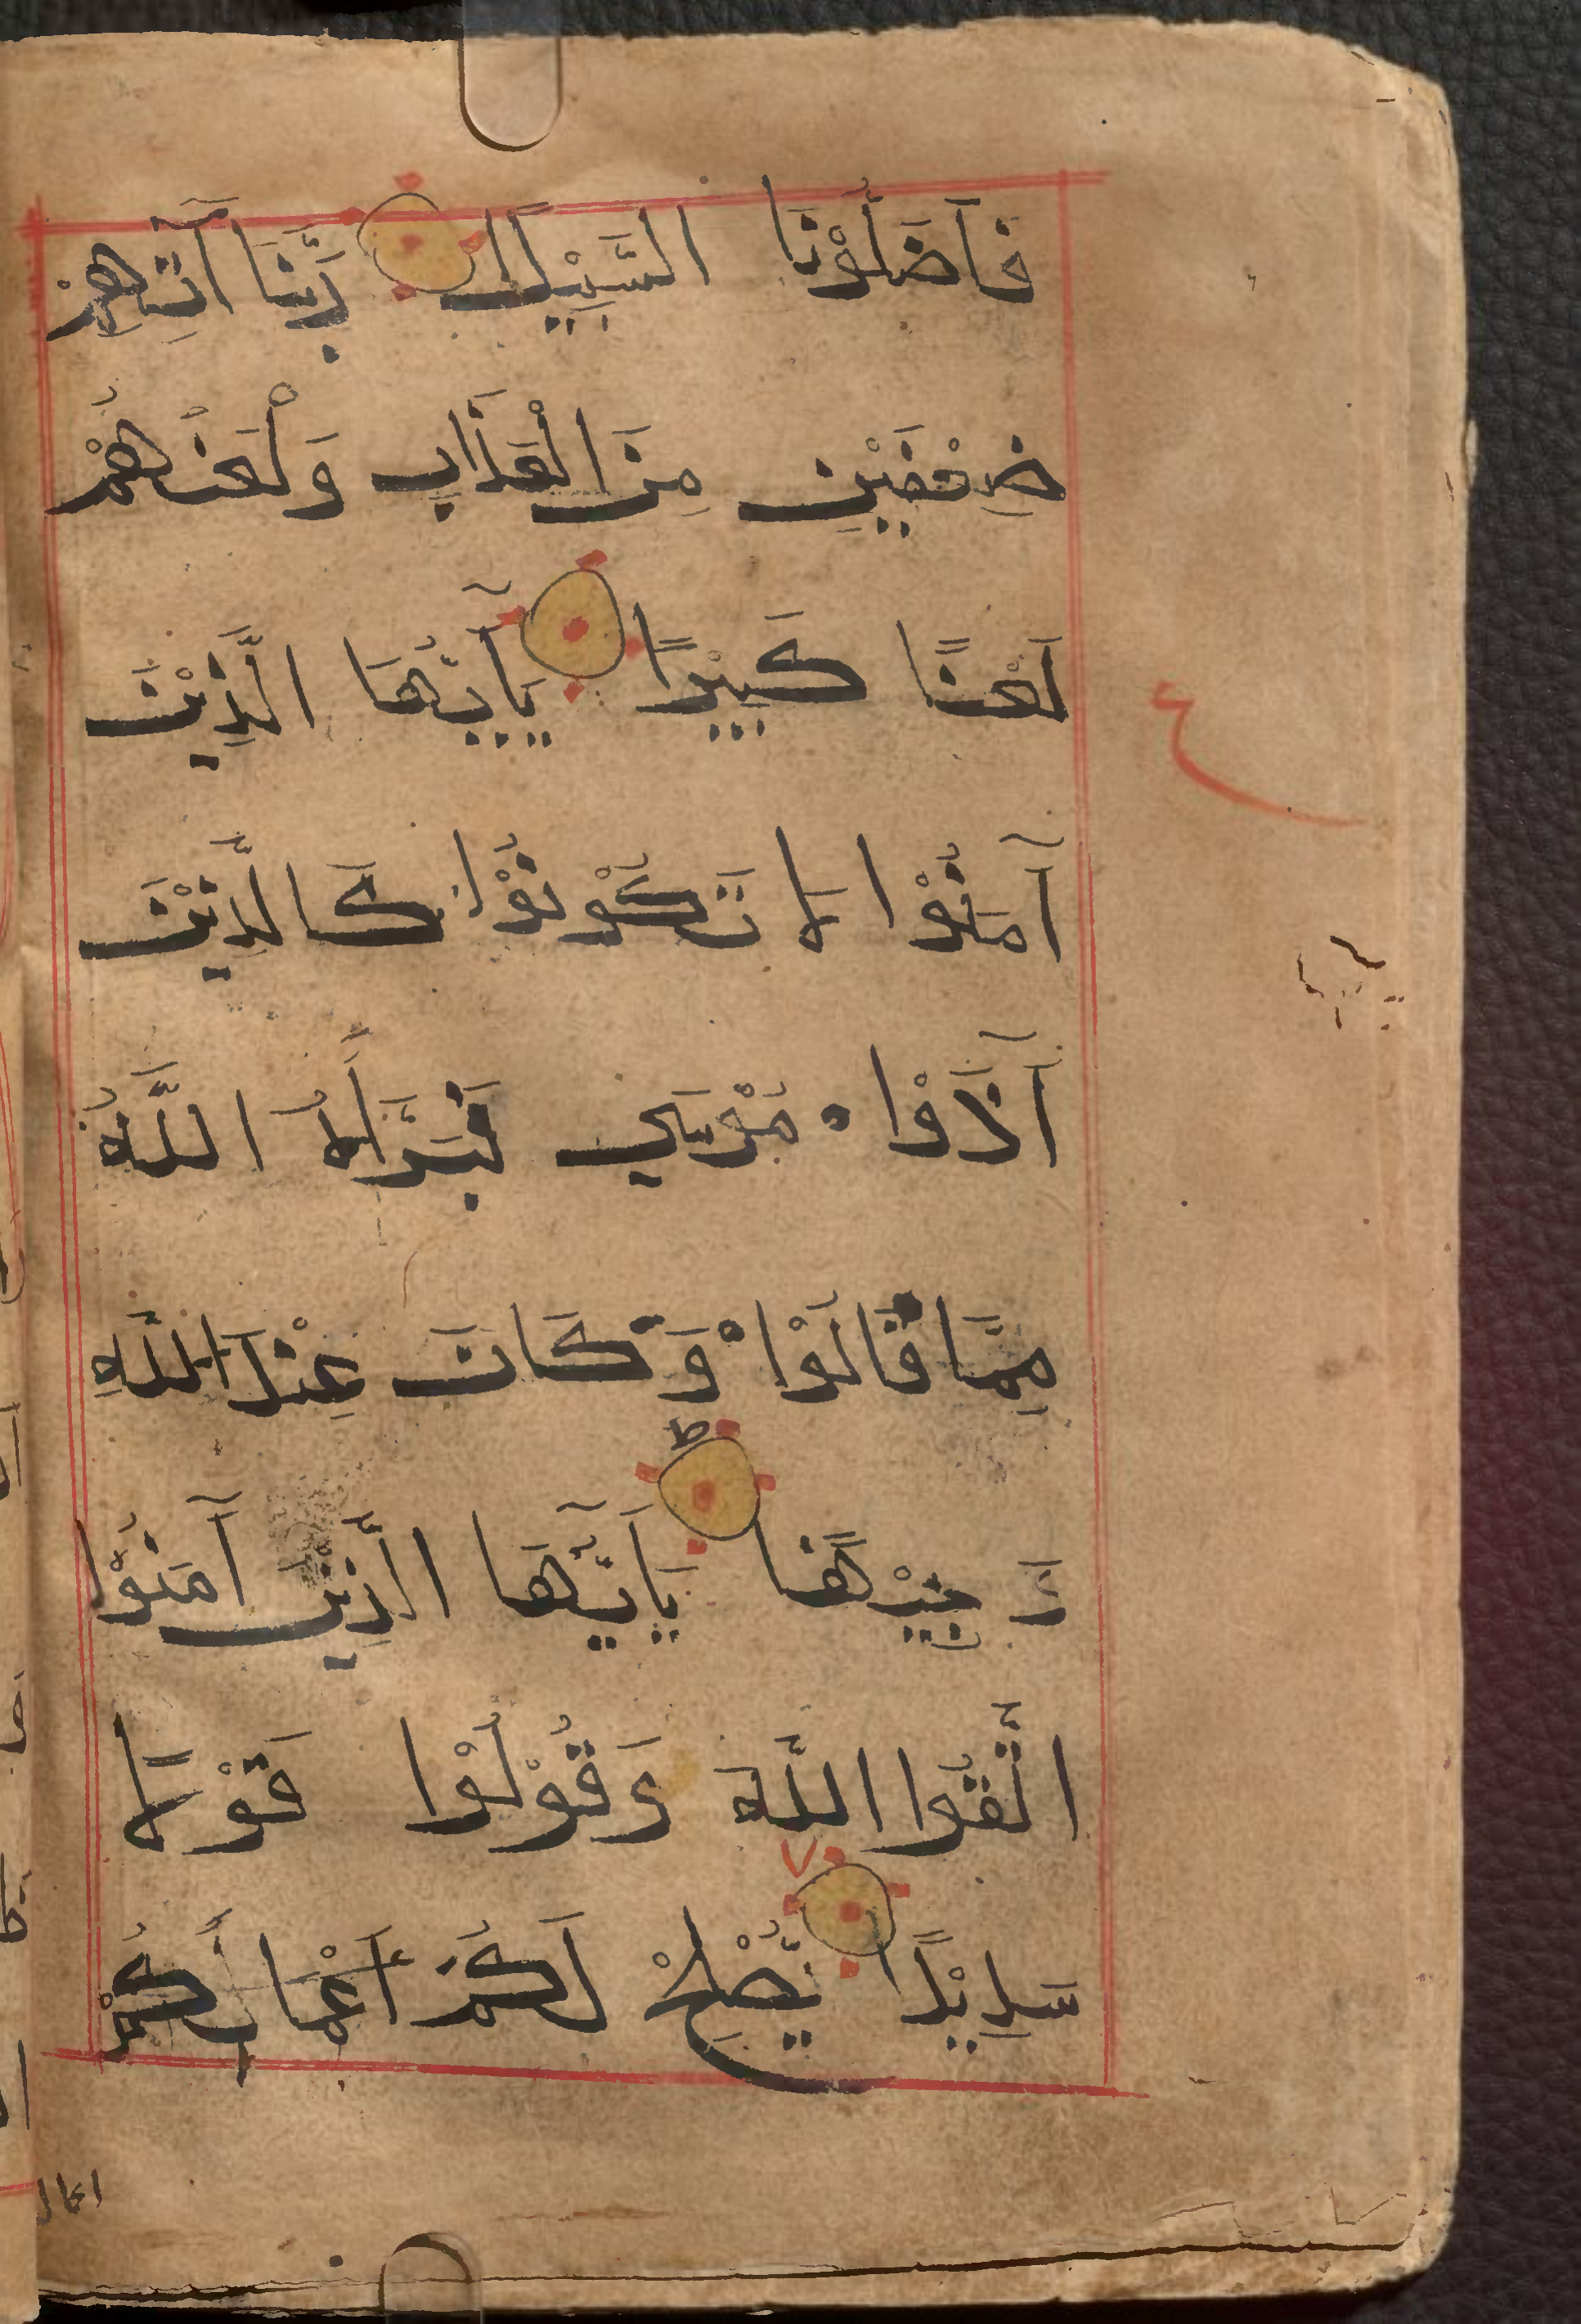 فَأَضَلُّوْنَا السَّبِيْلَا رَبَّنَا آتِهِمْ
ضِعْفَيْنِ مِنَ الْعَذَابِ وَلْعَنْهُمْ
لَعْنًا كَبِيْرًا يَآيُّهَا الَّذِيْنَ
ع
آمَنُوْا لَا تَكُوْنُوْا كَالَّذِيْنَ
آذَوْا مُوْسَي فَبَرَّأَهُ اللَّهُ
مِمَّا قَالُوْا وَكَانَ عِنْدَ اللَّهِ
ط
وَجِيْهًا يَآيُّهَا الَّذِيْنَ آمَنُوْا
اتَّقُوا اللَّهَ وَقُوْلُوْا قَوْلًا
٧
سَدِيْدًا يُّصْلِحْ لَكُمْ أَعْمَالَكُمْ
اعمال